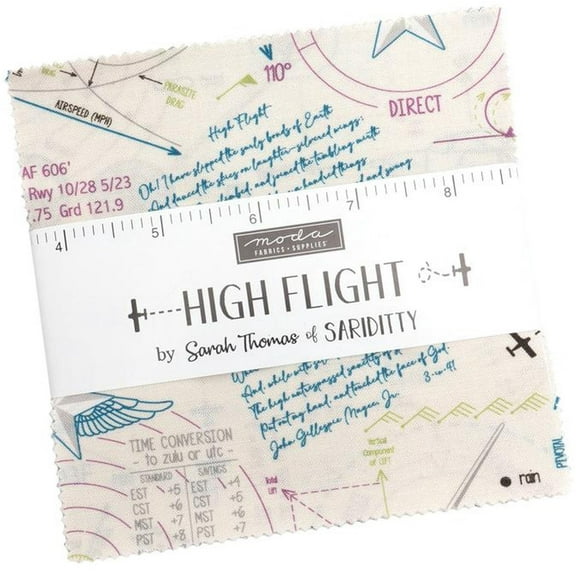 110°
PARASITE
DRAG
AIRSPEED (MPH)
DIRECT
High Flight
Oh! I have slipped the surly bonds of Earth
And danced the skies on laughter-silvered wings;
and joined the tumbling mirth
AF 606'
Rwy 10/28 5/23
.75 Grd 121.9
4 5 6 7 8
moda
FABRICS + SUPPLIES
HIGH FLIGHT
by Sarah Thomas of SARIDITTY
And, while with
The high untrespassed sanctity of
Put out my hand, and touched the face of God.
John Gillespie Magee, Jr.
TIME CONVERSION
- to zulu or utc -
STANDARD SAVINGS
EST +5 EST +4
CST +6 CST +5
MST +7 MST +6
PST +8 PST +7
Total
Lift
Vertical
Component
of LIFT
PIVOTAL
rain